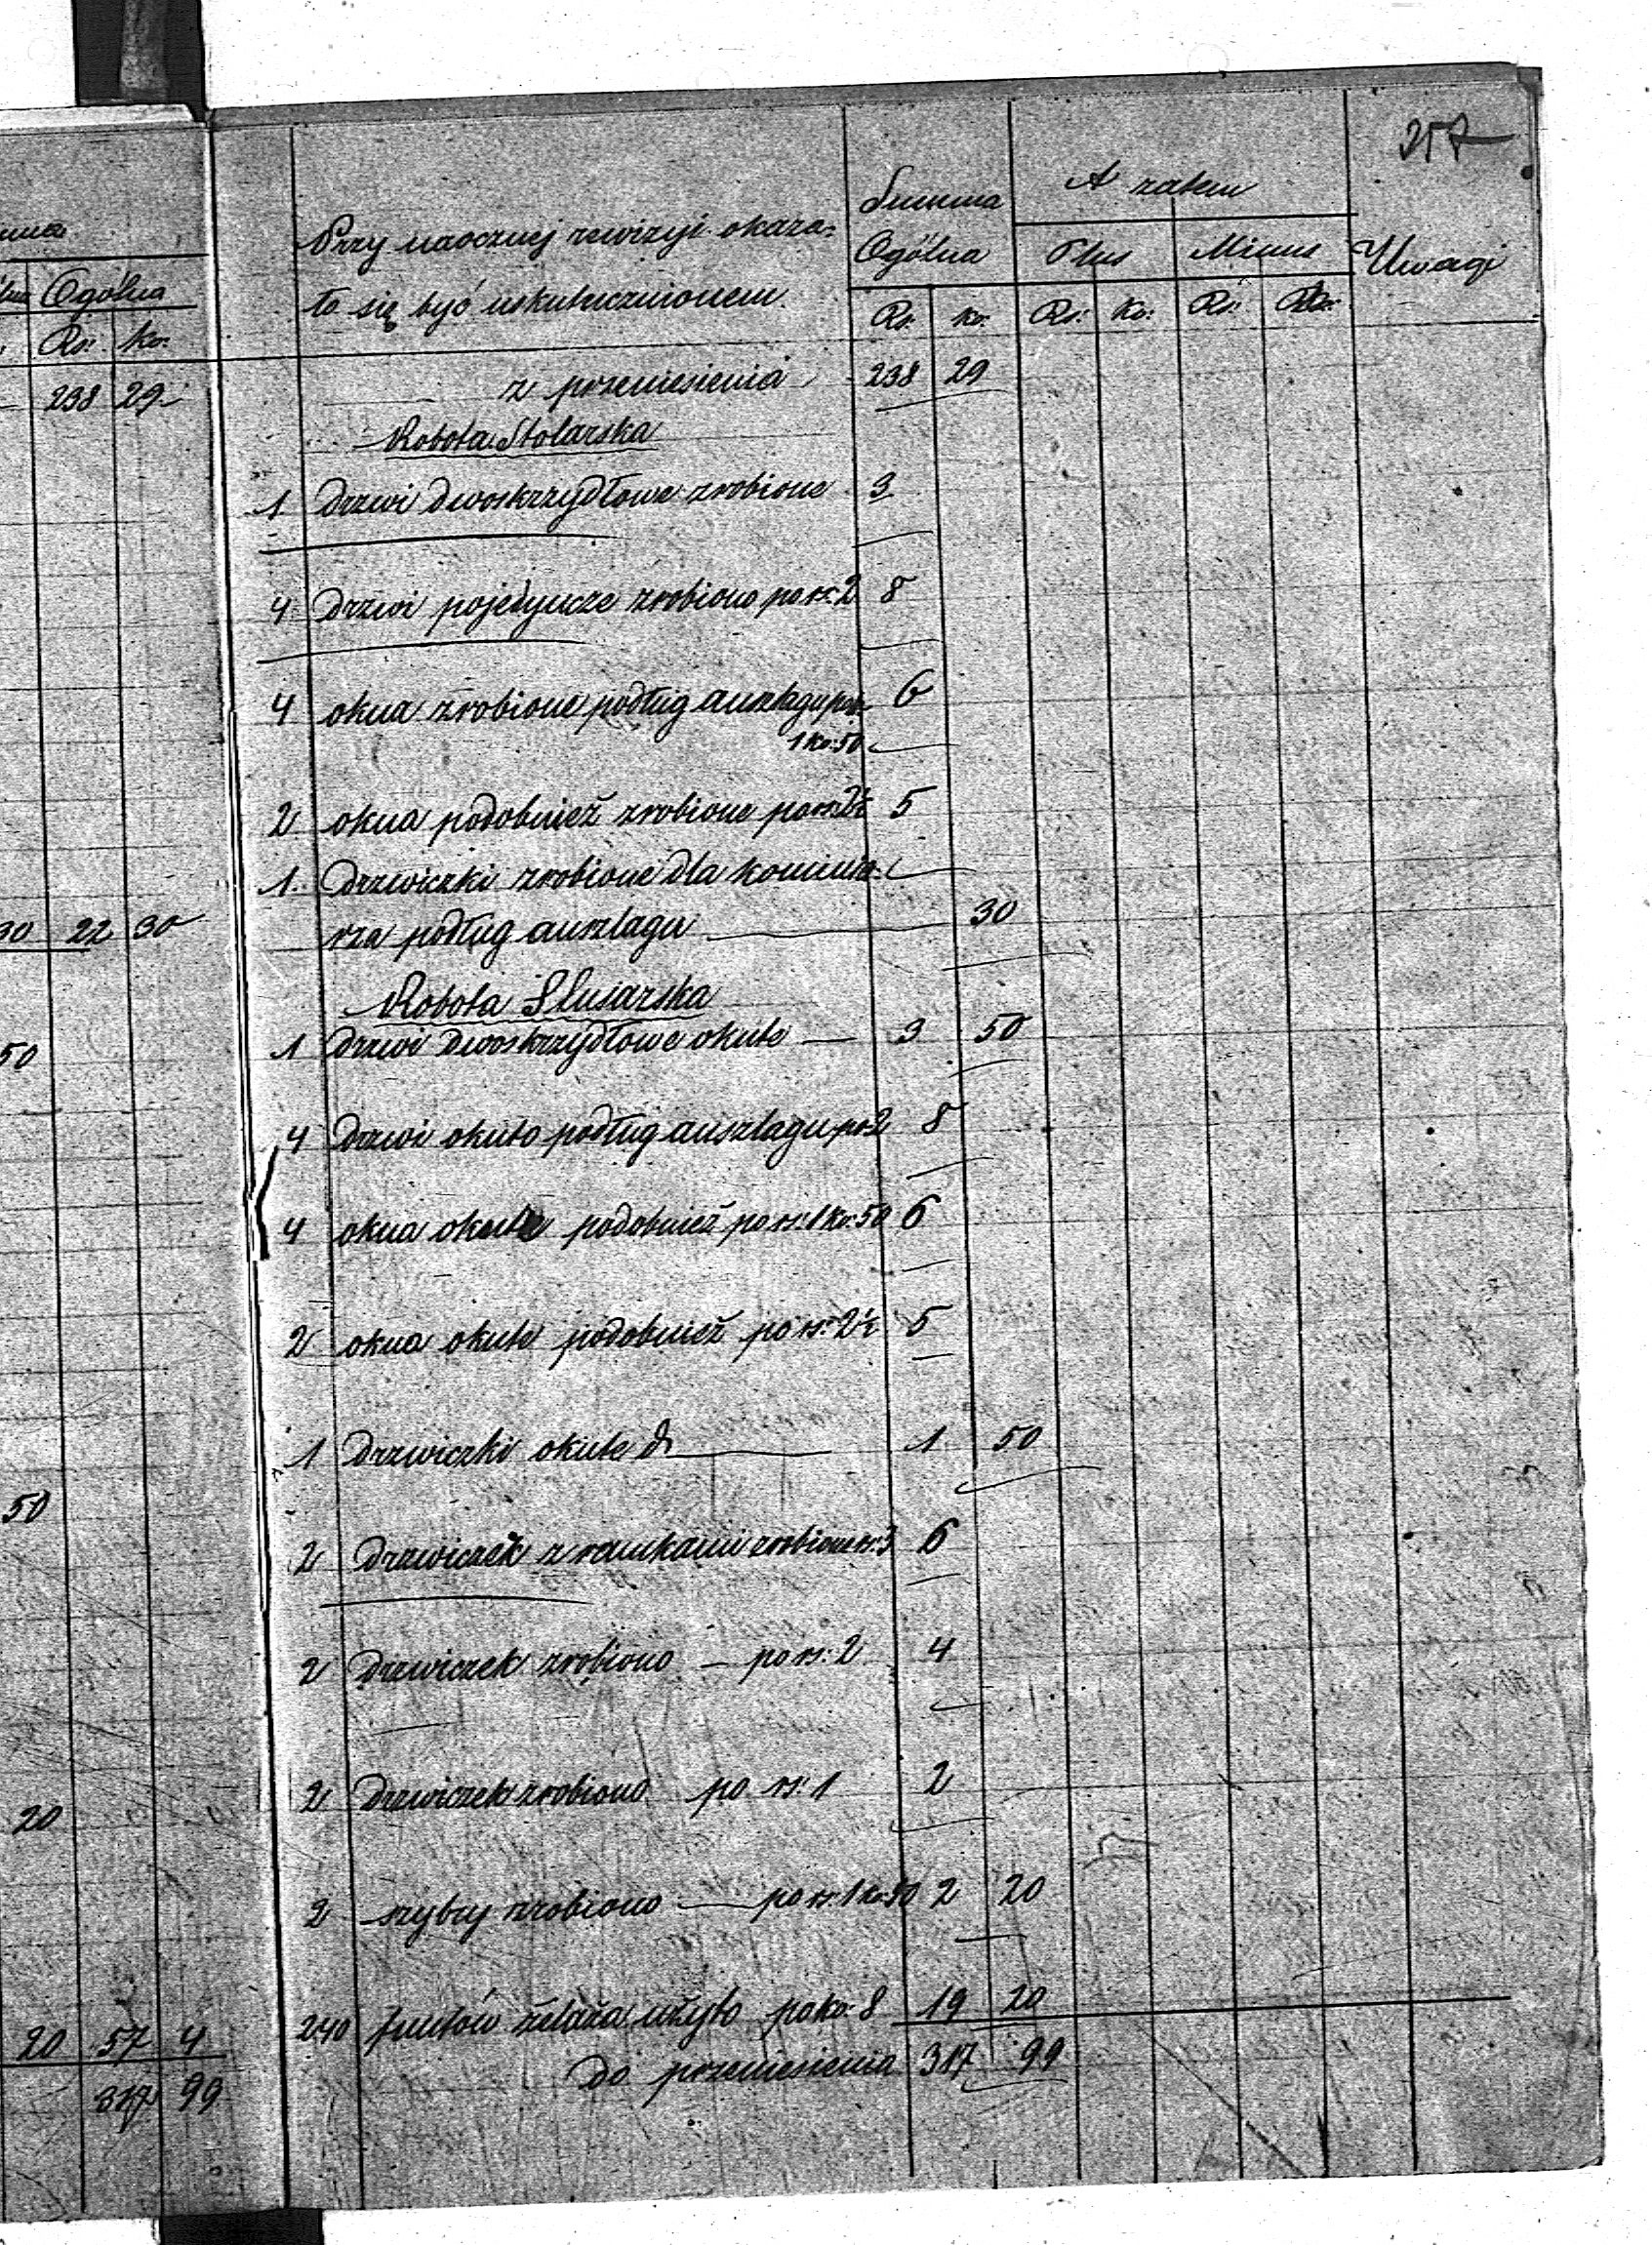 257
Summa
A zatem
Przy naocznej rewizyi okaza-
Ogólna
Plus
Minus
Uwagi
ło się być uskutecznionem
Rs: ko: Rs: Ko: Rs: Ko:
Ogólna
Rs: ko:
238 29
z przeniesienia 238 29
Robota Stolarska
1 drzwi dwoskrzydłowe zrobione 3
4 drzwi pojedyncze zrobiono po rs: 2 8
4 okna zrobione podług auszlagu po rs: 6
1 ko: 50
2 okna podobnież zrobione po rs: 2½ 5
1 drzwiczki zrobione dla kominia-
rza podług auszlagu 30
30 22 30
Robota Slusarska
1 drzwi dwoskrzydłowe okute 3 50
50
4 drzwi okuto podług auszlagu po 2 8
4 okna okute podobnież po rs: 1 ko: 50 6
2 okna okute podobnież po rs: 2½ 5
1 drzwiczki okute 1 50
50
2 drzwiczek z ramkami zrobione rs: 3 6
2 drzwiczek zrobiono po rs: 2 4
2 drzwiczek zrobiono po rs: 1 2
20
2 szybry zrobiono po rs: 1 ko: 2 20
240 funtów żelaza użyto po ko: 8 19 20
20 57 4
do przeniesienia 317 99
317 99